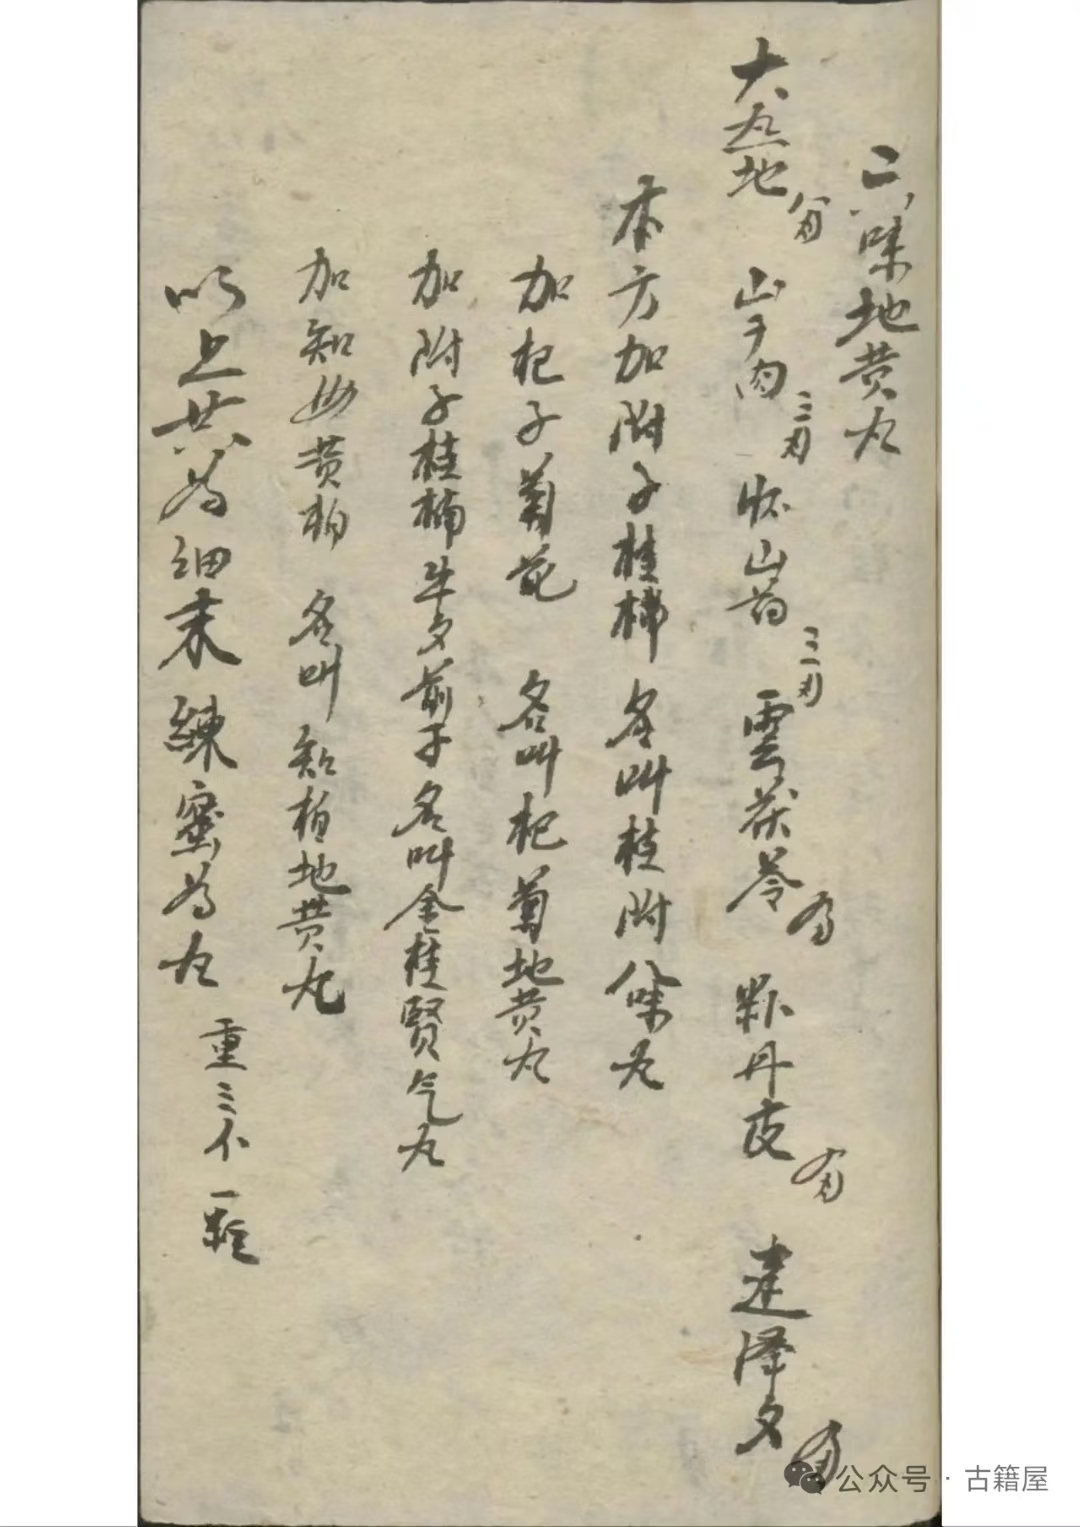 六味地黄丸
大熟地 八刄 山于肉 三刄 怀山药 三刄 雲茯苓 刄 丹皮 刄 建泽夕 刄
本方加附子桂 名叫桂附八味丸
加杞子菊花 名叫杞菊地黄丸
加附子桂楠牛夕前子名叫金桂賢气丸
加知母黄柏 名叫知柏地黄丸
以上共为细末練蜜为丸 重三 一
公众号·古籍屋